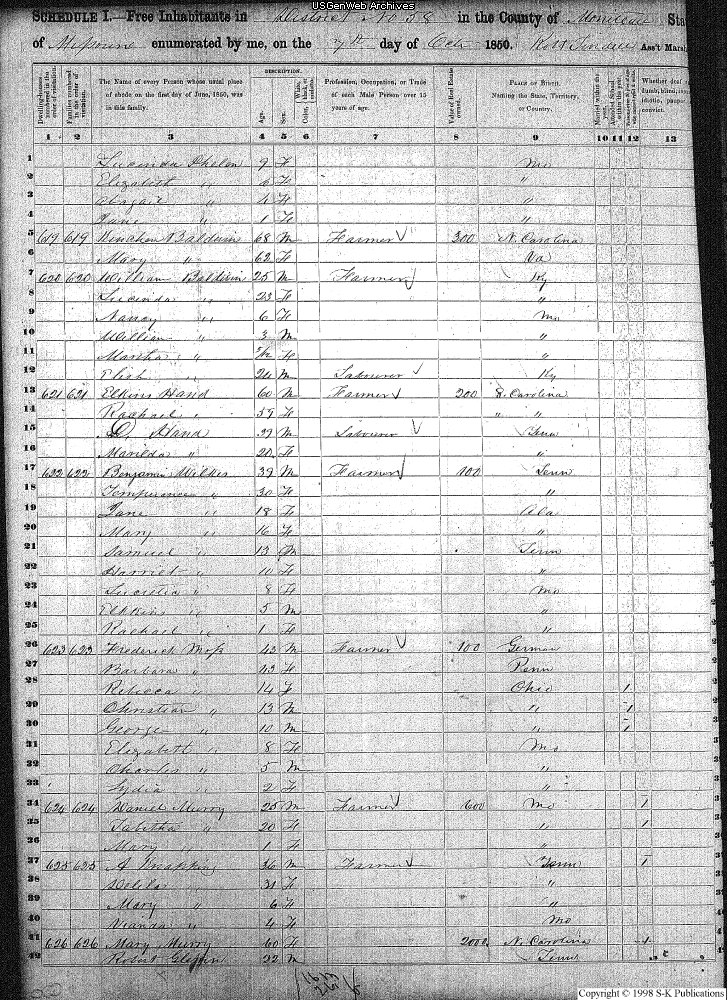 USGenWeb Archives
SCHEDULE I.—Free Inhabitants in District No 38 in the County of Moniteau Sta
of Missouri enumerated by me, on the 7th day of Oct 1850. Ass't Marsh
DESCRIPTION.
Dwelling-houses numbered in the order of visitation.
Families numbered in the order of visitation.
The Name of every Person whose usual place of abode on the first day of June, 1850, was in this family.
Age.
Sex.
Color, White, black, or mulatto.
Profession, Occupation, or Trade of each Male Person over 15 years of age.
Value of Real Estate owned.
PLACE OF BIRTH. Naming the State, Territory, or Country.
Married within the year.
Whether deaf dumb, blind, idiotic, pauper convict.
1 2 3 4 5 6 7 8 9 10 11 12 13
1 Lucinda Phelon 9 F Mo
2 Elizabeth " 6 F "
3 " 4 F "
4 Jane " 1 F "
5 619 619 Baldwin 68 M Farmer 300 N. Carolina
6 Mary " 62 F Va
7 620 620 William Baldwin 25 M Farmer Ky
8 Lucinda " 23 F "
9 Nancy " 6 F Mo
10 William " 3 M "
11 Martha " F "
12 " 24 M Labourer Ky
13 621 621 Elkins Hand 60 M Farmer 200 S. Carolina
14 Rachael " 59 F " "
15 Hand 39 M Labourer Tenn
16 Marilda " 20 F "
17 622 622 Benjamin Wilkes 39 M Farmer 100 Tenn
18 Temperance " 30 F "
19 Jane " 18 F Ala
20 Mary " 16 F "
21 Samuel " 13 M Tenn
22 Harriet " F "
23 Lucretia " 8 F Mo
24 " 5 M "
25 Rachael " 1 F "
26 623 623 Frederick Moss 43 M Farmer 100 German
27 Barbara " 43 F Penn
28 Rebecca " 14 F Ohio 1
29 Christian " 13 M " 1
30 George " 10 M " 1
31 Elizabeth " 8 F Mo
32 Charles " 5 M "
33 Lydia " 2 F "
34 624 624 Daniel Murry 25 M Farmer 600 Mo 1
35 Tabitha " 20 F " 1
36 Mary " 1 F "
37 625 625 A 36 M Farmer Tenn 1
38 " 31 F "
39 Mary " 6 F "
40 " 4 F Mo
41 626 626 Mary Murry 60 F 2000 N. Carolina 1
42 Robert 22 M Tenn
Copyright © 1998 S-K Publications